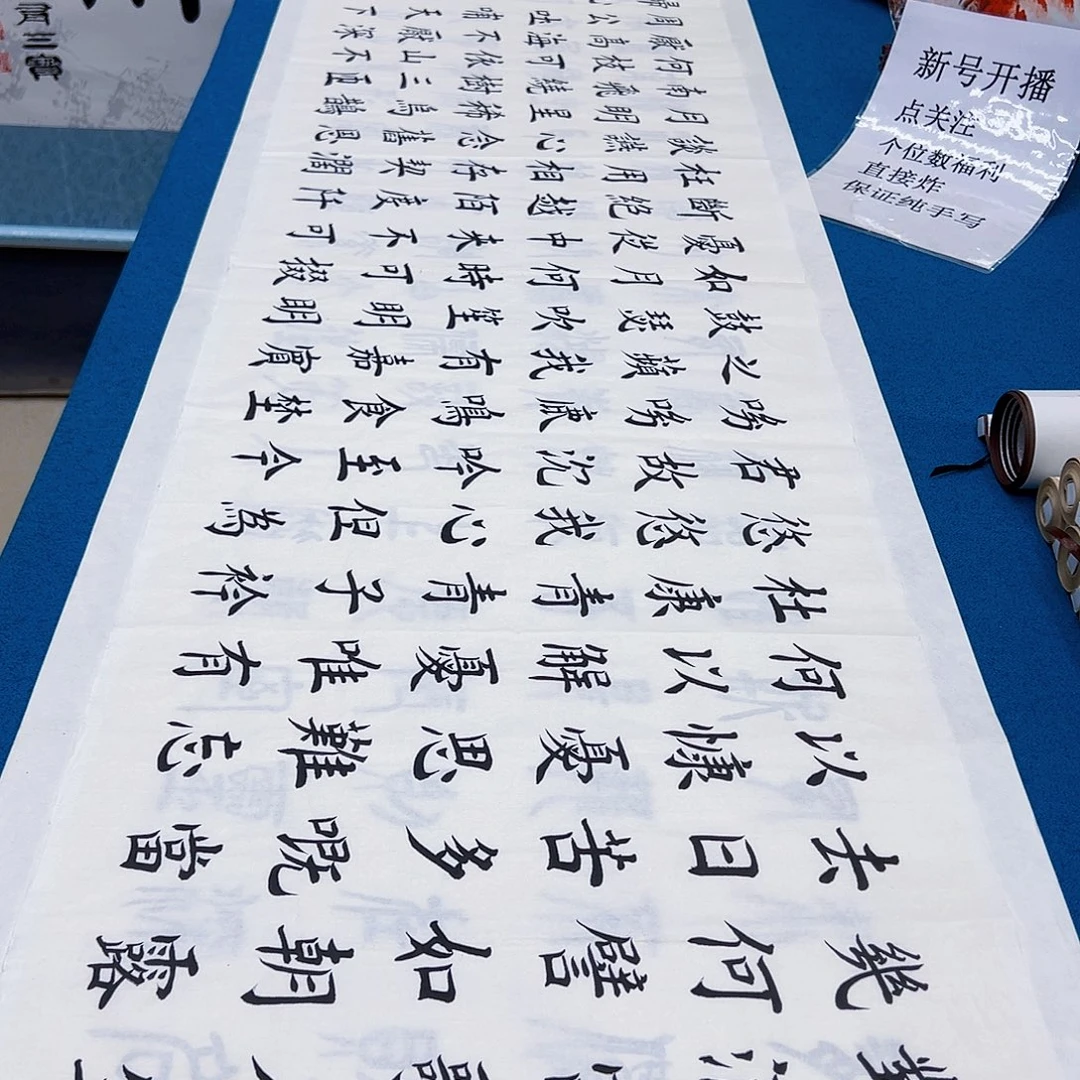 對酒當歌人生
幾何譬如朝露
去日苦多嘅當
以慷憂思難忘
何以解憂唯有
杜康青青子衿
悠悠我心但為
君故沉吟至今
呦呦鹿鳴食埜
之蘋我有嘉賓
鼓瑟吹笙明明
如月何時可掇
憂從中来不可
斷絕越陌度阡
枉用相存契闊
談讌心念舊恩
月明星稀烏鵲
南飛繞樹三匝
何枝可依山不
厭高海不厭深
周公吐哺天下
歸心
新号开播
点关注
个位数福利
直接炸
保证纯手写